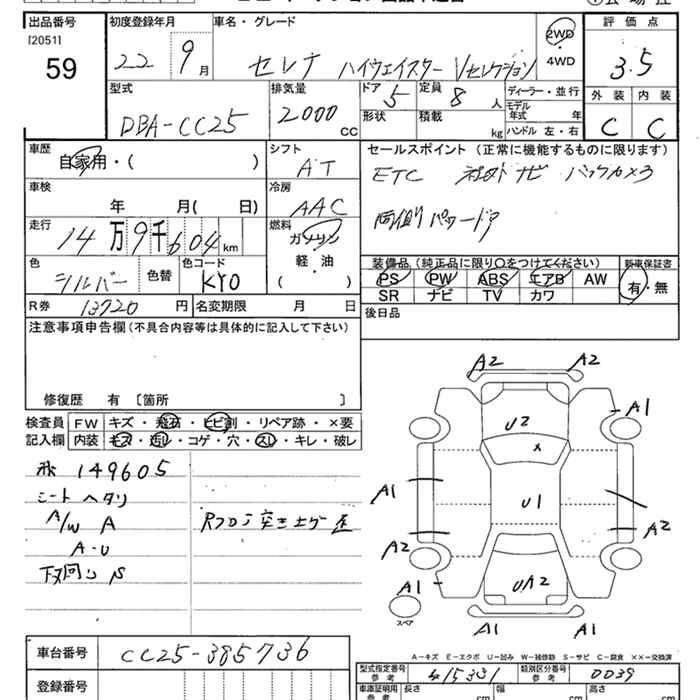 出品番号 初度登録年月 車名・グレード 評価点
[2051]
59 22 9月 セレナ ハイウェイスター Vセレクション 2WD・4WD 3.5
型式 排気量 ドア 定員 ディーラー・並行 外装 内装
DBA-CC25 2000 CC 5 8人 モデル年式 年 C C
形状 積載 kg ハンドル 左・右
車歴 シフト セールスポイント (正常に機能するものに限ります)
自家用・( ) AT ETC 社外ナビ バックカメラ
車検 冷房
年 月( 日) AAC 両側パワードア
走行 燃料
14万9千604km ガソリン
軽・油
( )
色 色替 色コード 装備品 (純正品に限り○をつけてください) 新車保証書
シルバー KY0 PS PW ABS エアB AW 有・無
SR ナビ TV カワ
R券 13720円 名変期限 月 日 後日品
注意事項申告欄(不具合内容等は具体的に記入して下さい)
修復歴 有 [箇所 ]
検査員 FW キズ・飛石・ヒビ割・リペア跡・×要
記入欄 内装 キズ・汚レ・コゲ・穴・スレ・キレ・破レ
149605
シートヘタリ
A/W A Rフロア突き上げ
A・U
下廻りS
A2 A2
A1
U2
A1 U1
A2 A2
A1 UA2
スペア
A1 A1
A-キズ E-エクボ U-凹み W-補修跡 S-サビ C-腐食 ××-交換済
車台番号 CC25-385736
型式指定番号 参考 15331 類別区分番号 参考 0039
登録番号 車庫証明用 参考 長さ cm 幅 cm 高さ cm